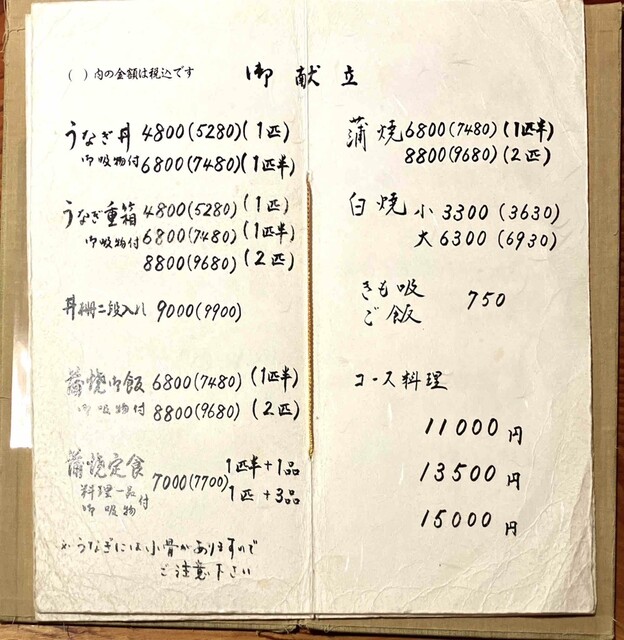 御献立
( )内の金額は税込です
うなぎ丼 4800(5280)(1匹)
御吸物付 6800(7480)(1匹半)
うなぎ重箱 4800(5280)(1匹)
御吸物付 6800(7480)(1匹半)
8800(9680)(2匹)
丼 二段入れ 9000(9900)
蒲焼御飯 6800(7480)(1匹半)
御吸物付 8800(9680)(2匹)
蒲焼定食 7000(7700) 1匹半+1品
料理一品付 1匹+3品
御吸物
※うなぎには小骨がありますので
ご注意下さい
蒲焼 6800(7480)(1匹半)
8800(9680)(2匹)
白焼 小 3300(3630)
大 6300(6930)
きも吸 750
ご飯
コース料理
11000円
13500円
15000円